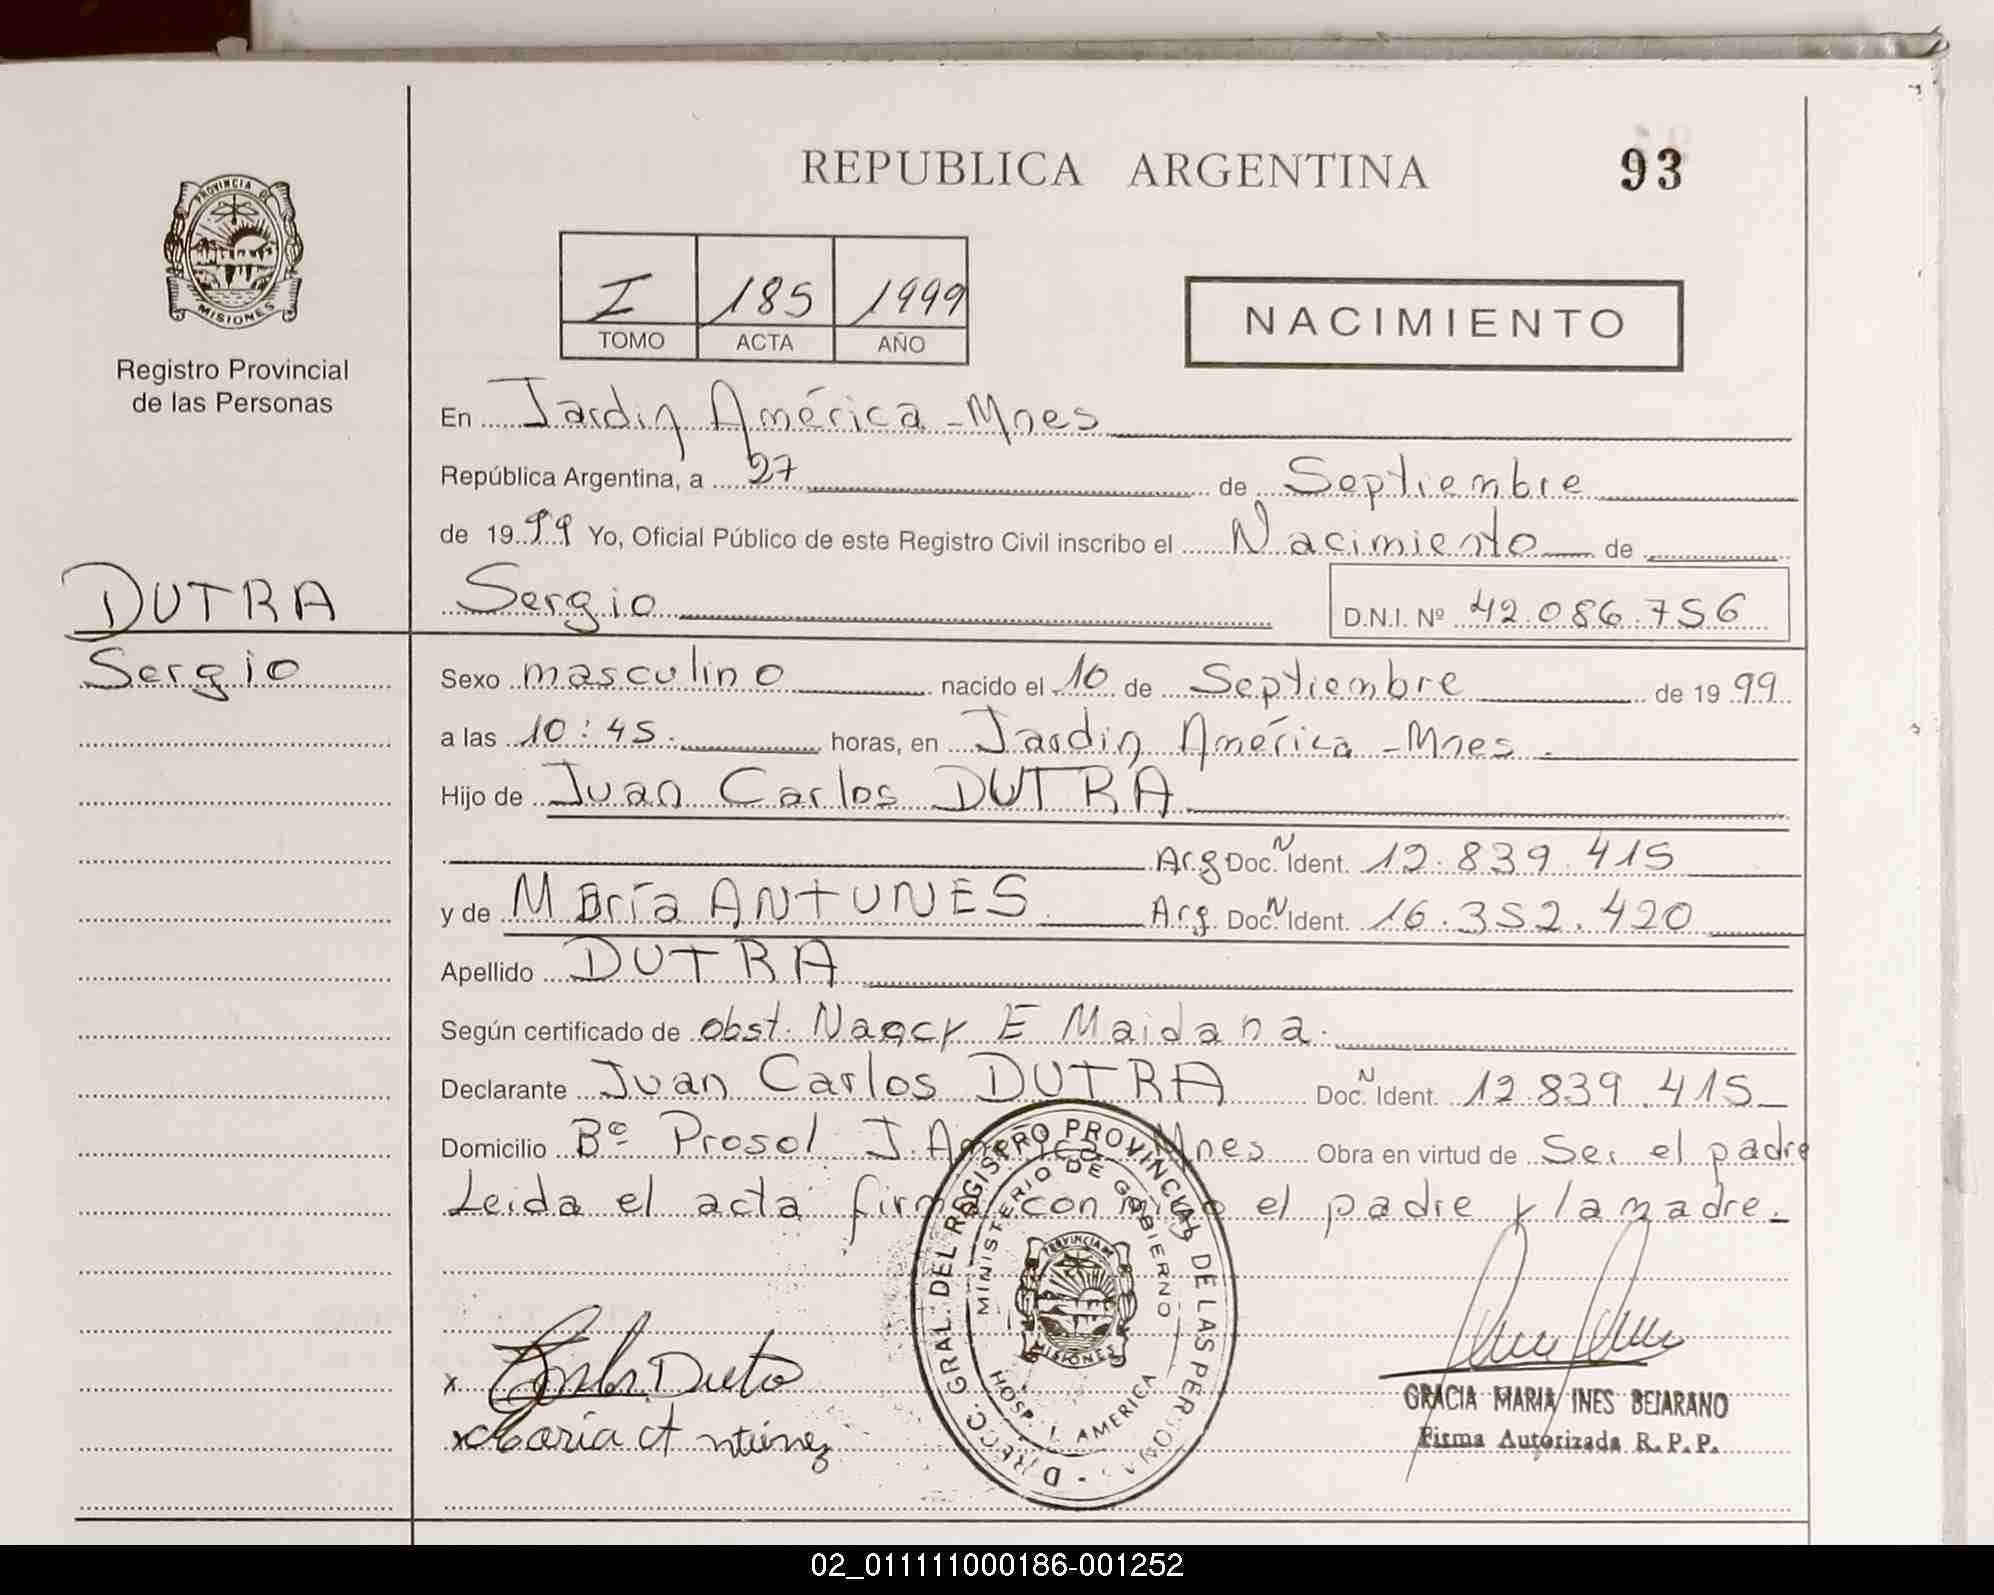 REPUBLICA ARGENTINA
93
PROVINCIA DE
MISIONES
Registro Provincial
de las Personas
I 185 1999
TOMO ACTA AÑO
NACIMIENTO
En Jardin América - Mnes
República Argentina, a 27 de Septiembre
de 1999 Yo, Oficial Público de este Registro Civil inscribo el Nacimiento de
DUTRA
Sergio
Sergio D.N.I. Nº 42.086.756
Sexo masculino nacido el 10 de Septiembre de 1999
a las 10:45. horas, en Jardin América - Mnes.
Hijo de Juan Carlos DUTRA
Arg Doc. N Ident. 12.839.415
y de María ANTUNES Arg. Doc. N Ident. 16.352.420
Apellido DUTRA
Según certificado de obst. Nancy E Maidana.
Declarante Juan Carlos DUTRA Doc. N Ident. 12.839.415
Domicilio Bº Prosol J. América Mnes Obra en virtud de Ser el padre
Leida el acta firman conmigo el padre y la madre.
DIRECC. GRAL. DEL REGISTRO PROVINCIAL DE LAS PERSONAS
MINISTERIO DE GOBIERNO
PROVINCIA DE
MISIONES
HOSP. J. AMERICA
x
x María Antúnez
GRACIA MARIA INES BEJARANO
Firma Autorizada R.P.P.
02_011111000186-001252